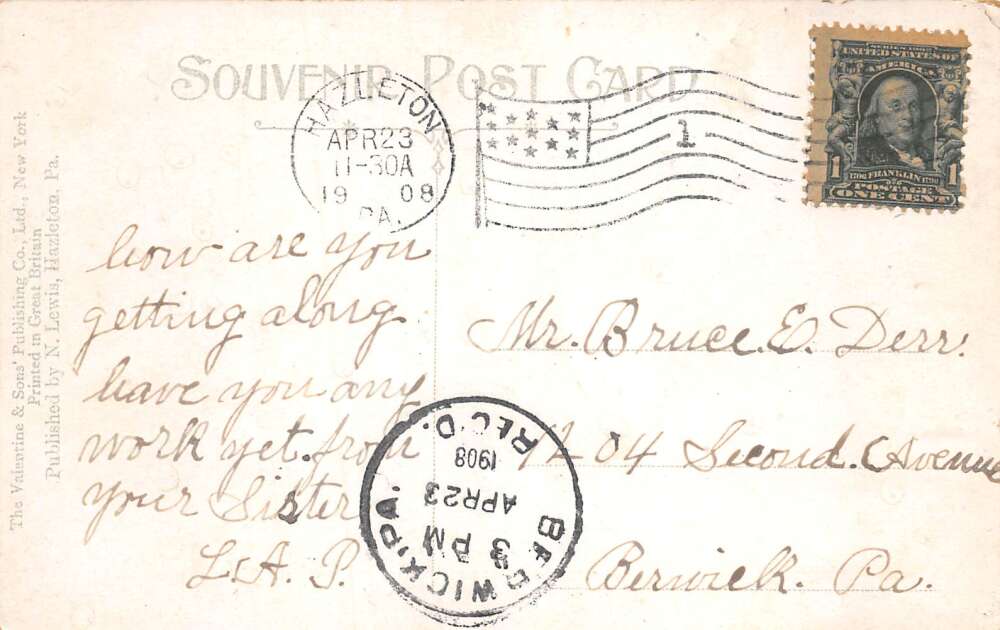 SOUVENIR POST CARD
SERIES 1902
UNITED STATES OF
AMERICA
1706 FRANKLIN 1790
POSTAGE
1 ONE CENT 1
HAZLETON
APR 23
11-30A
1908
PA.
1
The Valentine & Sons' Publishing Co., Ltd., New York
Printed in Great Britain
Published by N. Lewis, Hazleton, Pa.
how are you
getting along
have you any
work yet. from
your Sister
L. A. P.
Mr. Bruce. E. Derr.
1204 Second. Avenue
Berwick. Pa.
BERWICK, PA.
3 PM
APR 23
1908
REC'D.